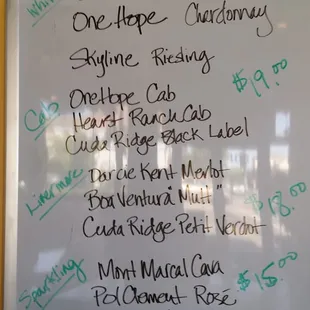 White
One Hope Chardonnay
Skyline Riesling
$19.00
Cab
OneHope Cab
Hearst Ranch Cab
Cuda Ridge Black Label
Livermore
Darcie Kent Merlot
Boa Ventura "Mutt"
$18.00
Cuda Ridge Petit Verdot
Sparkling
Mont Marcal Cava
$15.00
Pol Clement Rosé